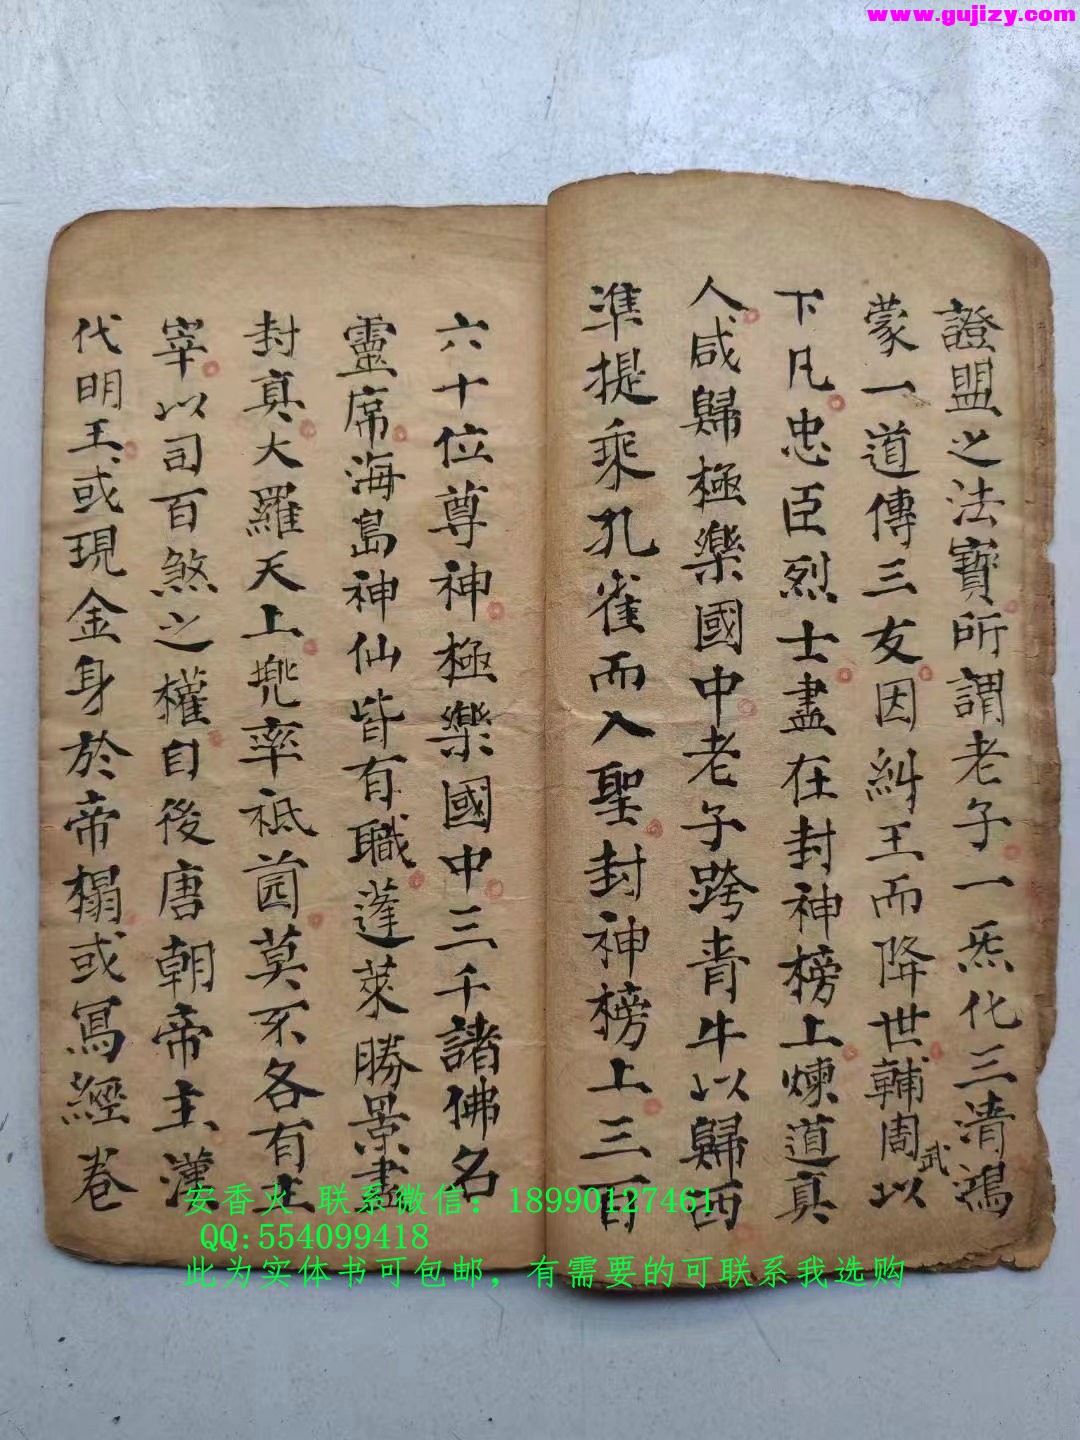 www.gujizy.com
證盟之法寶所謂老子一炁化三清鴻
蒙一道傳三友因糾王而降世輔周武以
下凡忠臣烈士盡在封神榜上煉道真
人咸歸極樂國中老子跨青牛以歸西
準提乘孔雀而入聖封神榜上三百
六十位尊神極樂國中三千諸佛名
靈席海島神仙皆有職蓬萊勝景盡
封真大羅天上兜率祗园莫不各有主
宰以司百煞之權自後唐朝帝主漢
代明王或現金身於帝榻或寫經卷
安香火 联系微信：18990127461
QQ:554099418
此为实体书可包邮，有需要的可联系我选购